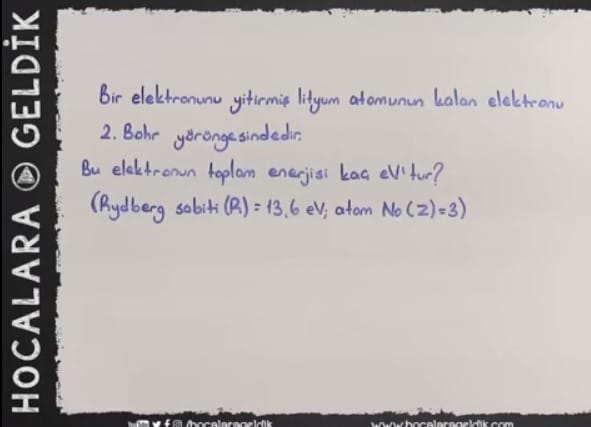 HOCALARA GELDİK
Bir elektronunu yitirmiş lityum atomunun kalan elektronu
2. Bohr yörüngesindedir.
Bu elektronun toplam enerjisi kaç eV'tur?
(Rydberg sabiti (R) = 13,6 eV; atom No (Z)=3)
/hocalarageldik
www.hocalarageldik.com